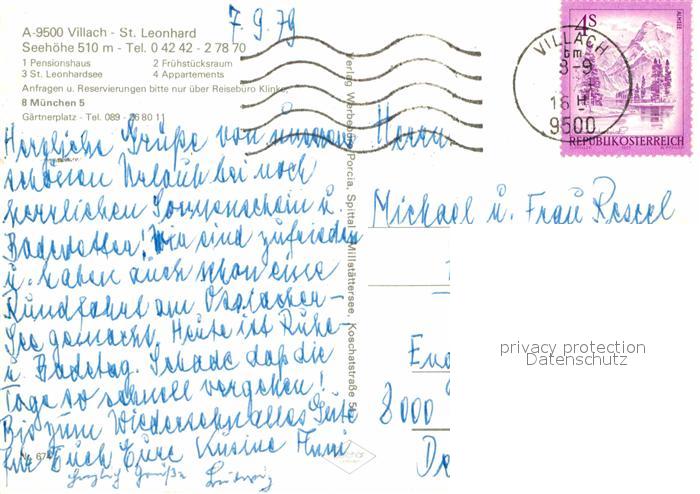 7.9.79
A-9500 Villach - St. Leonhard
Seehöhe 510 m - Tel. 0 42 42 - 2 78 70
1 Pensionshaus 2 Frühstücksraum
3 St. Leonhardsee 4 Appartements
Anfragen u. Reservierungen bitte nur über Reisebüro Klinke,
8 München 5
Gärtnerplatz - Tel. 089 - 26 80 11
Herzliche Grüße von unserem
schönen Urlaub bei noch
herrlichen Sonnenschein u.
Badewetter! Wir sind zufrieden
u. haben auch schon eine
Rundfahrt am Ossiacher-
See gemacht. Heute ist Ruhe-
u. Badetag. Schade daß die
Tage so schnell vergehen!
Bis zum Wiedersehn alles Gute
für Euch Eure Kusine Anni
Herzliche Grüße Ludwig
Verlag Werbefoto Porcia, Spittal Millstättersee, Koschatstraße 5
4S
ALMSEE
REPUBLIK ÖSTERREICH
VILLACH
-9
18 H
9500
Herrn
Michael u. Frau
8000
privacy protection
Datenschutz